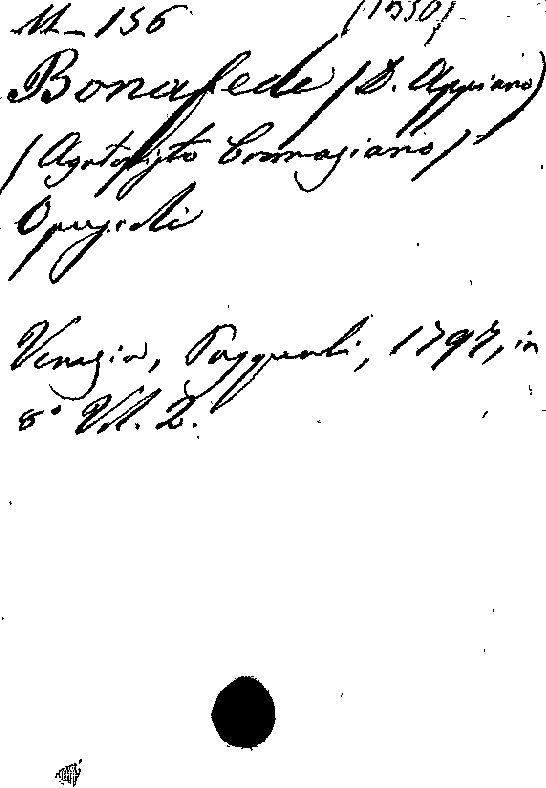 M-156 (1550)
Bonafede (D. Appiano)
(Agatopisto Cromaziano)
Opuscoli
Venezia, Pasquali, 1797, in
8° Vol. 2.